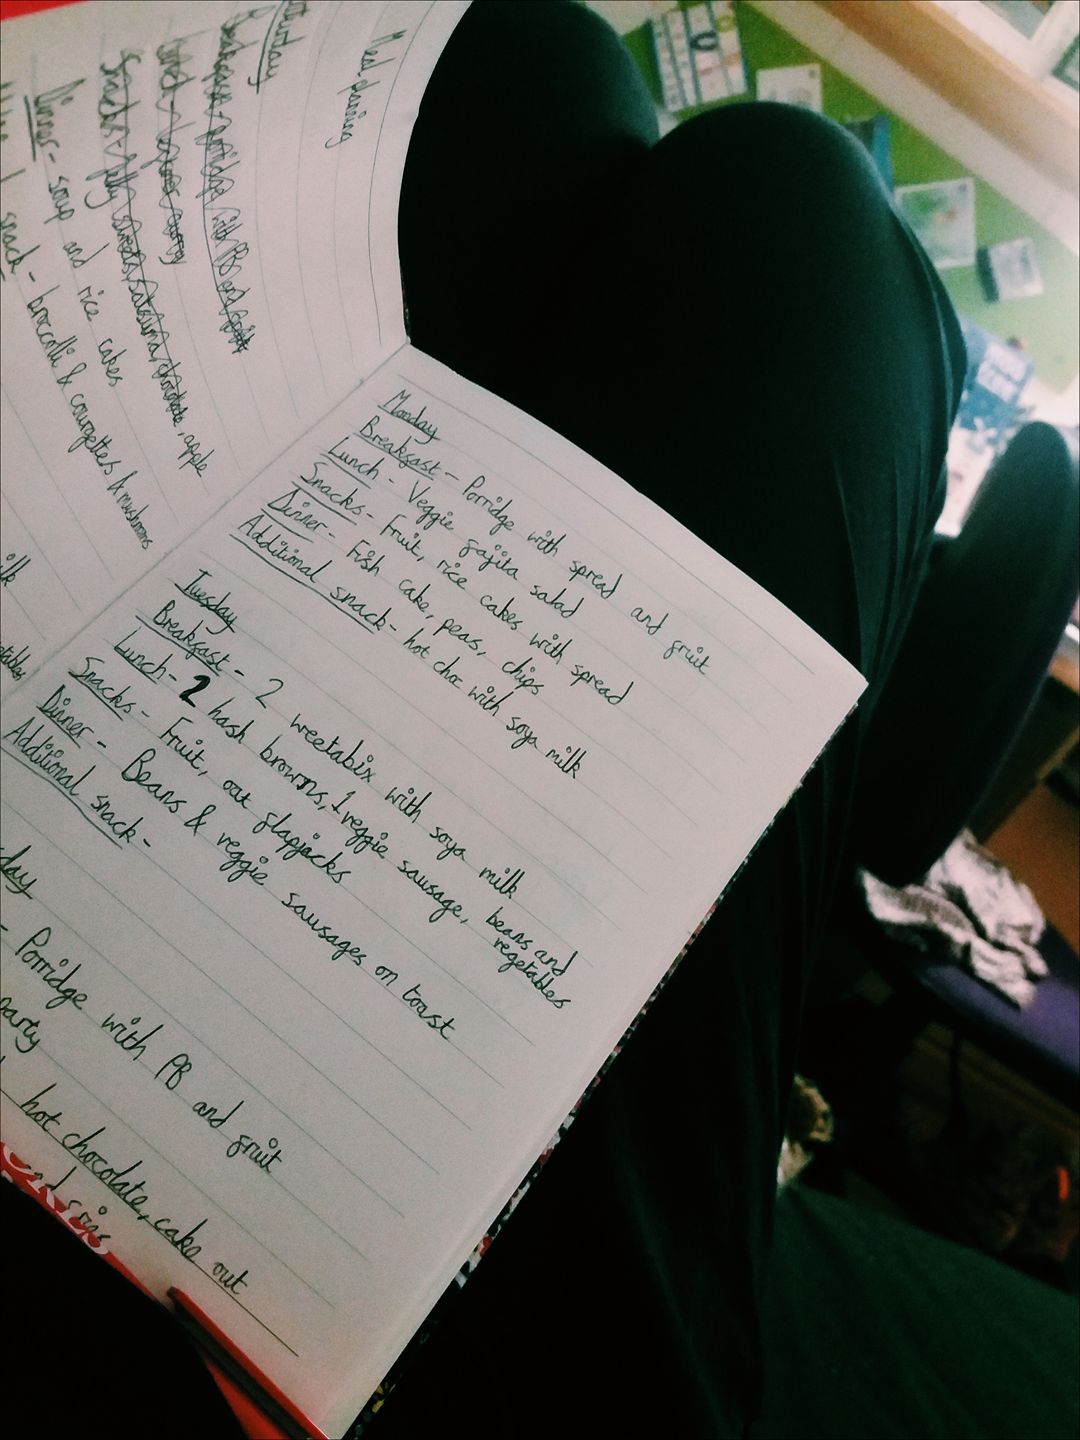 Meal planning
Saturday
Breakfast - porridge with PB and fruit
Lunch -
Snacks - jelly sweets, satsuma, chocolate, apple
Dinner - soup and rice cakes
snack - broccolli & courgettes & mushrooms
Monday
Breakfast - Porridge with spread and fruit
Lunch - Veggie fajita salad
Snacks - Fruit, rice cakes with spread
Dinner - Fish cake, peas, chips
Additional snack - hot choc with soya milk
Tuesday
Breakfast - 2 weetabix with soya milk
Lunch - 2 hash browns, 1 veggie sausage, beans and
vegetables
Snacks - Fruit, oat flapjacks
Dinner - Beans & veggie sausages on toast
Additional snack -
day
- Porridge with PB and fruit
party
hot chocolate, cake out